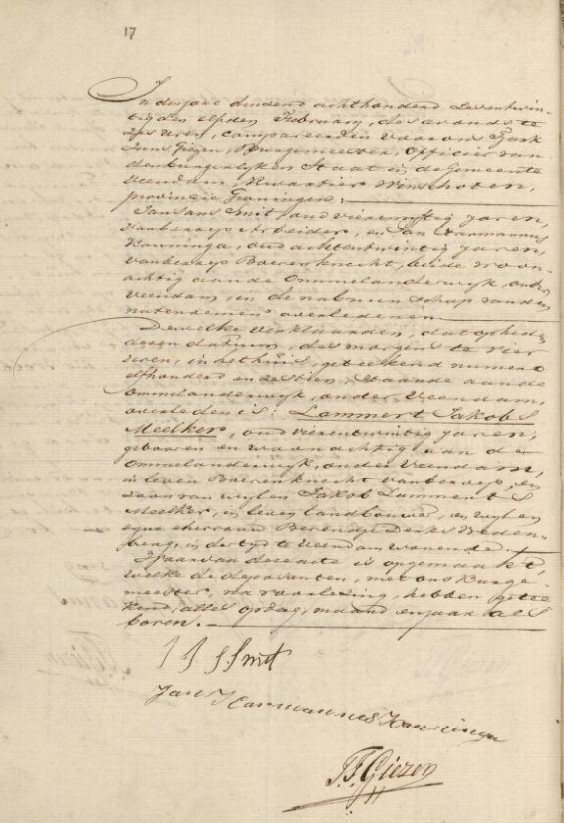 17
In den jare duizend achthonderd zeventwin-
tig den elfden February, des avonds te
zes uren, compareerden voor ons Tjark
Juns Giezen, Burgemeester, Officier van
den burgerlyken Staat in de Gemeente
Veendam, Kwartier Winschoten,
provincie Groningen:
Jan Jans Smit, oud vierenvyftig jaren,
van beroep Arbeider, en Jan Harmannus
Kanninga, oud achtentwintig jaren,
van beroep Boerenknecht, beide woon-
achtig aan de Ommelanderwyk, onder
Veendam, in de nabuurschap van den
natenoemen overledenen.
Dewelke verklaarden, dat op heden
dezen datum, des morgens te vier
uren, in het huis, geteekend numero
elfhonderd en zestien, staande aan de
Ommelanderwyk, onder Veendam,
overleden is: Lammert Jakobs
Meelker, oud vierentwintig jaren,
geboren en woonachtig aan de
Ommelanderwyk, onder Veendam,
in leven Boerenknecht van beroep, en
zoon van wylen Jakob Lammerts
Meelker, in leven landbouwer, en wylen
zyne ehevrouw Berendje Derks Breden-
berg, in der tyd te Veendam wonende.
Waarvan deze acte is opgemaakt,
welke de deposanten, met ons Burge-
meester, na voorlezing, hebben getee-
kend, alles op dag, maand en jaar als
boven.
J J Smit
Jan Harmannus Kanninga
T. J. Giezen